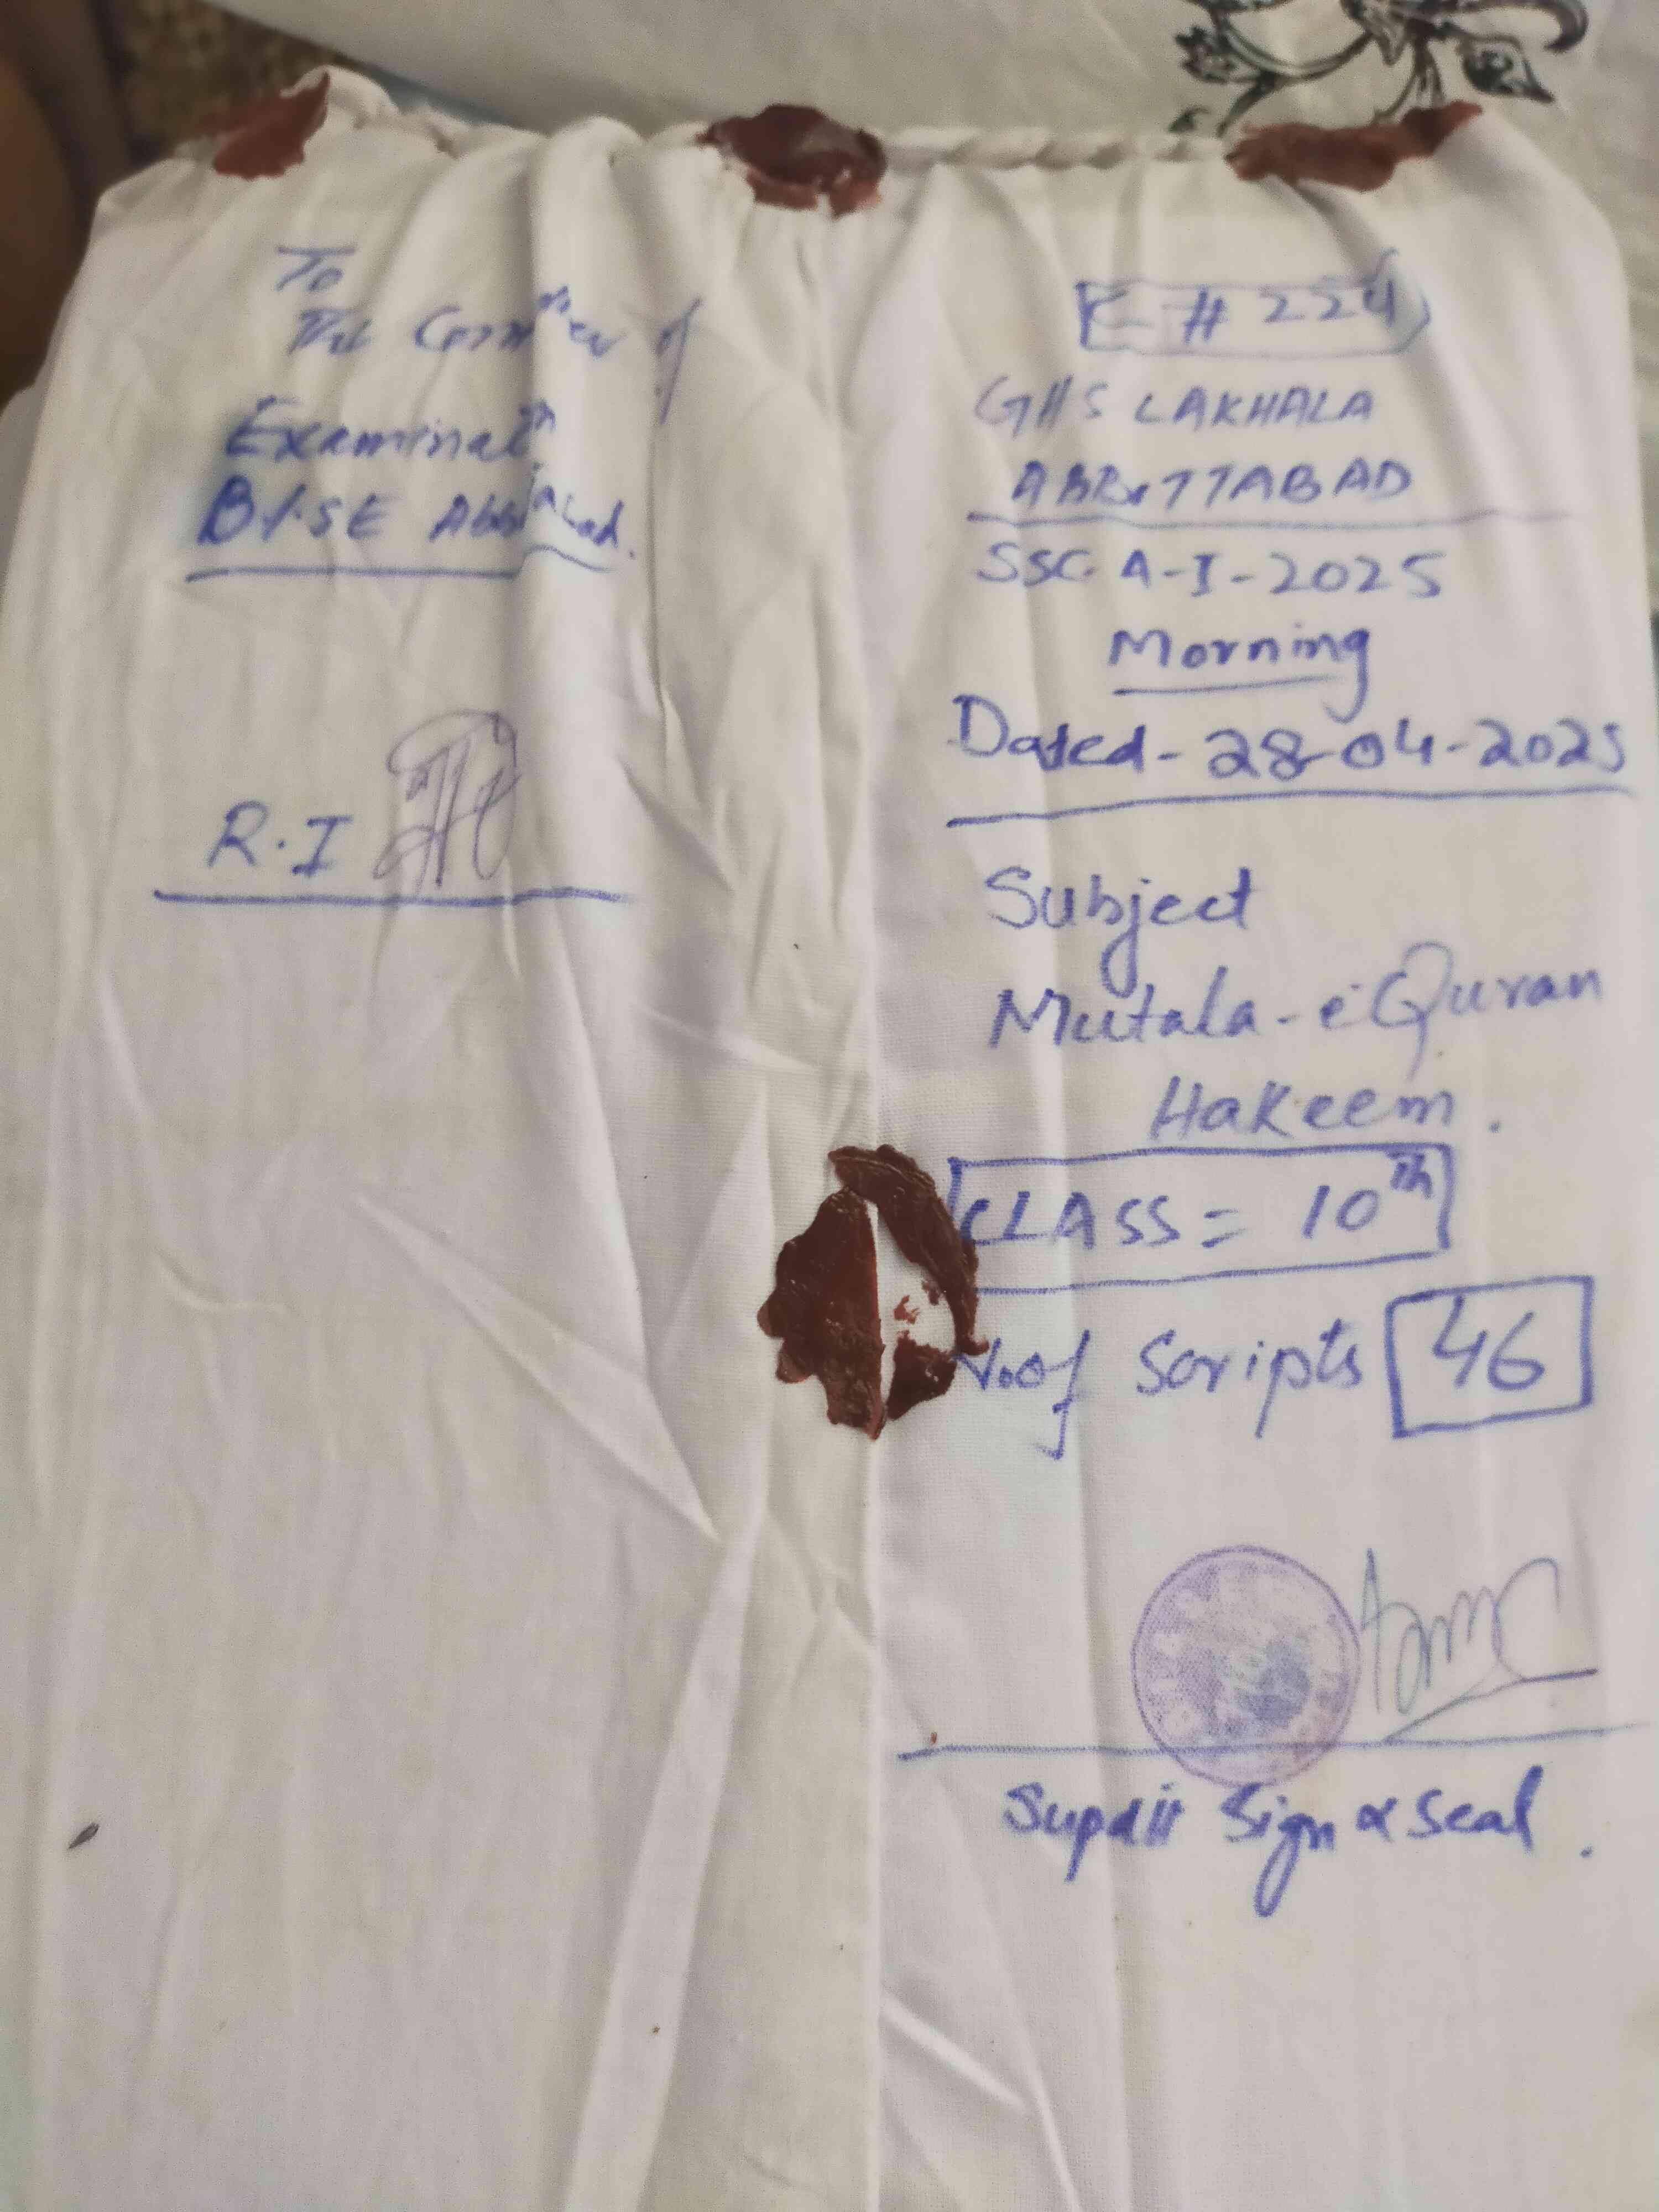 To
The Controller of
Examinatn
B.I.SE Abbottabad.
R.I
C # 224
GHS LAKHALA
ABBOTTABAD
SSC. A-I-2025
Morning
Dated-28-04-2025
Subject
Mutala-e-Quran
Hakeem.
CLASS = 10th
No of Scripts 46
Supdtt Sign & Seal.